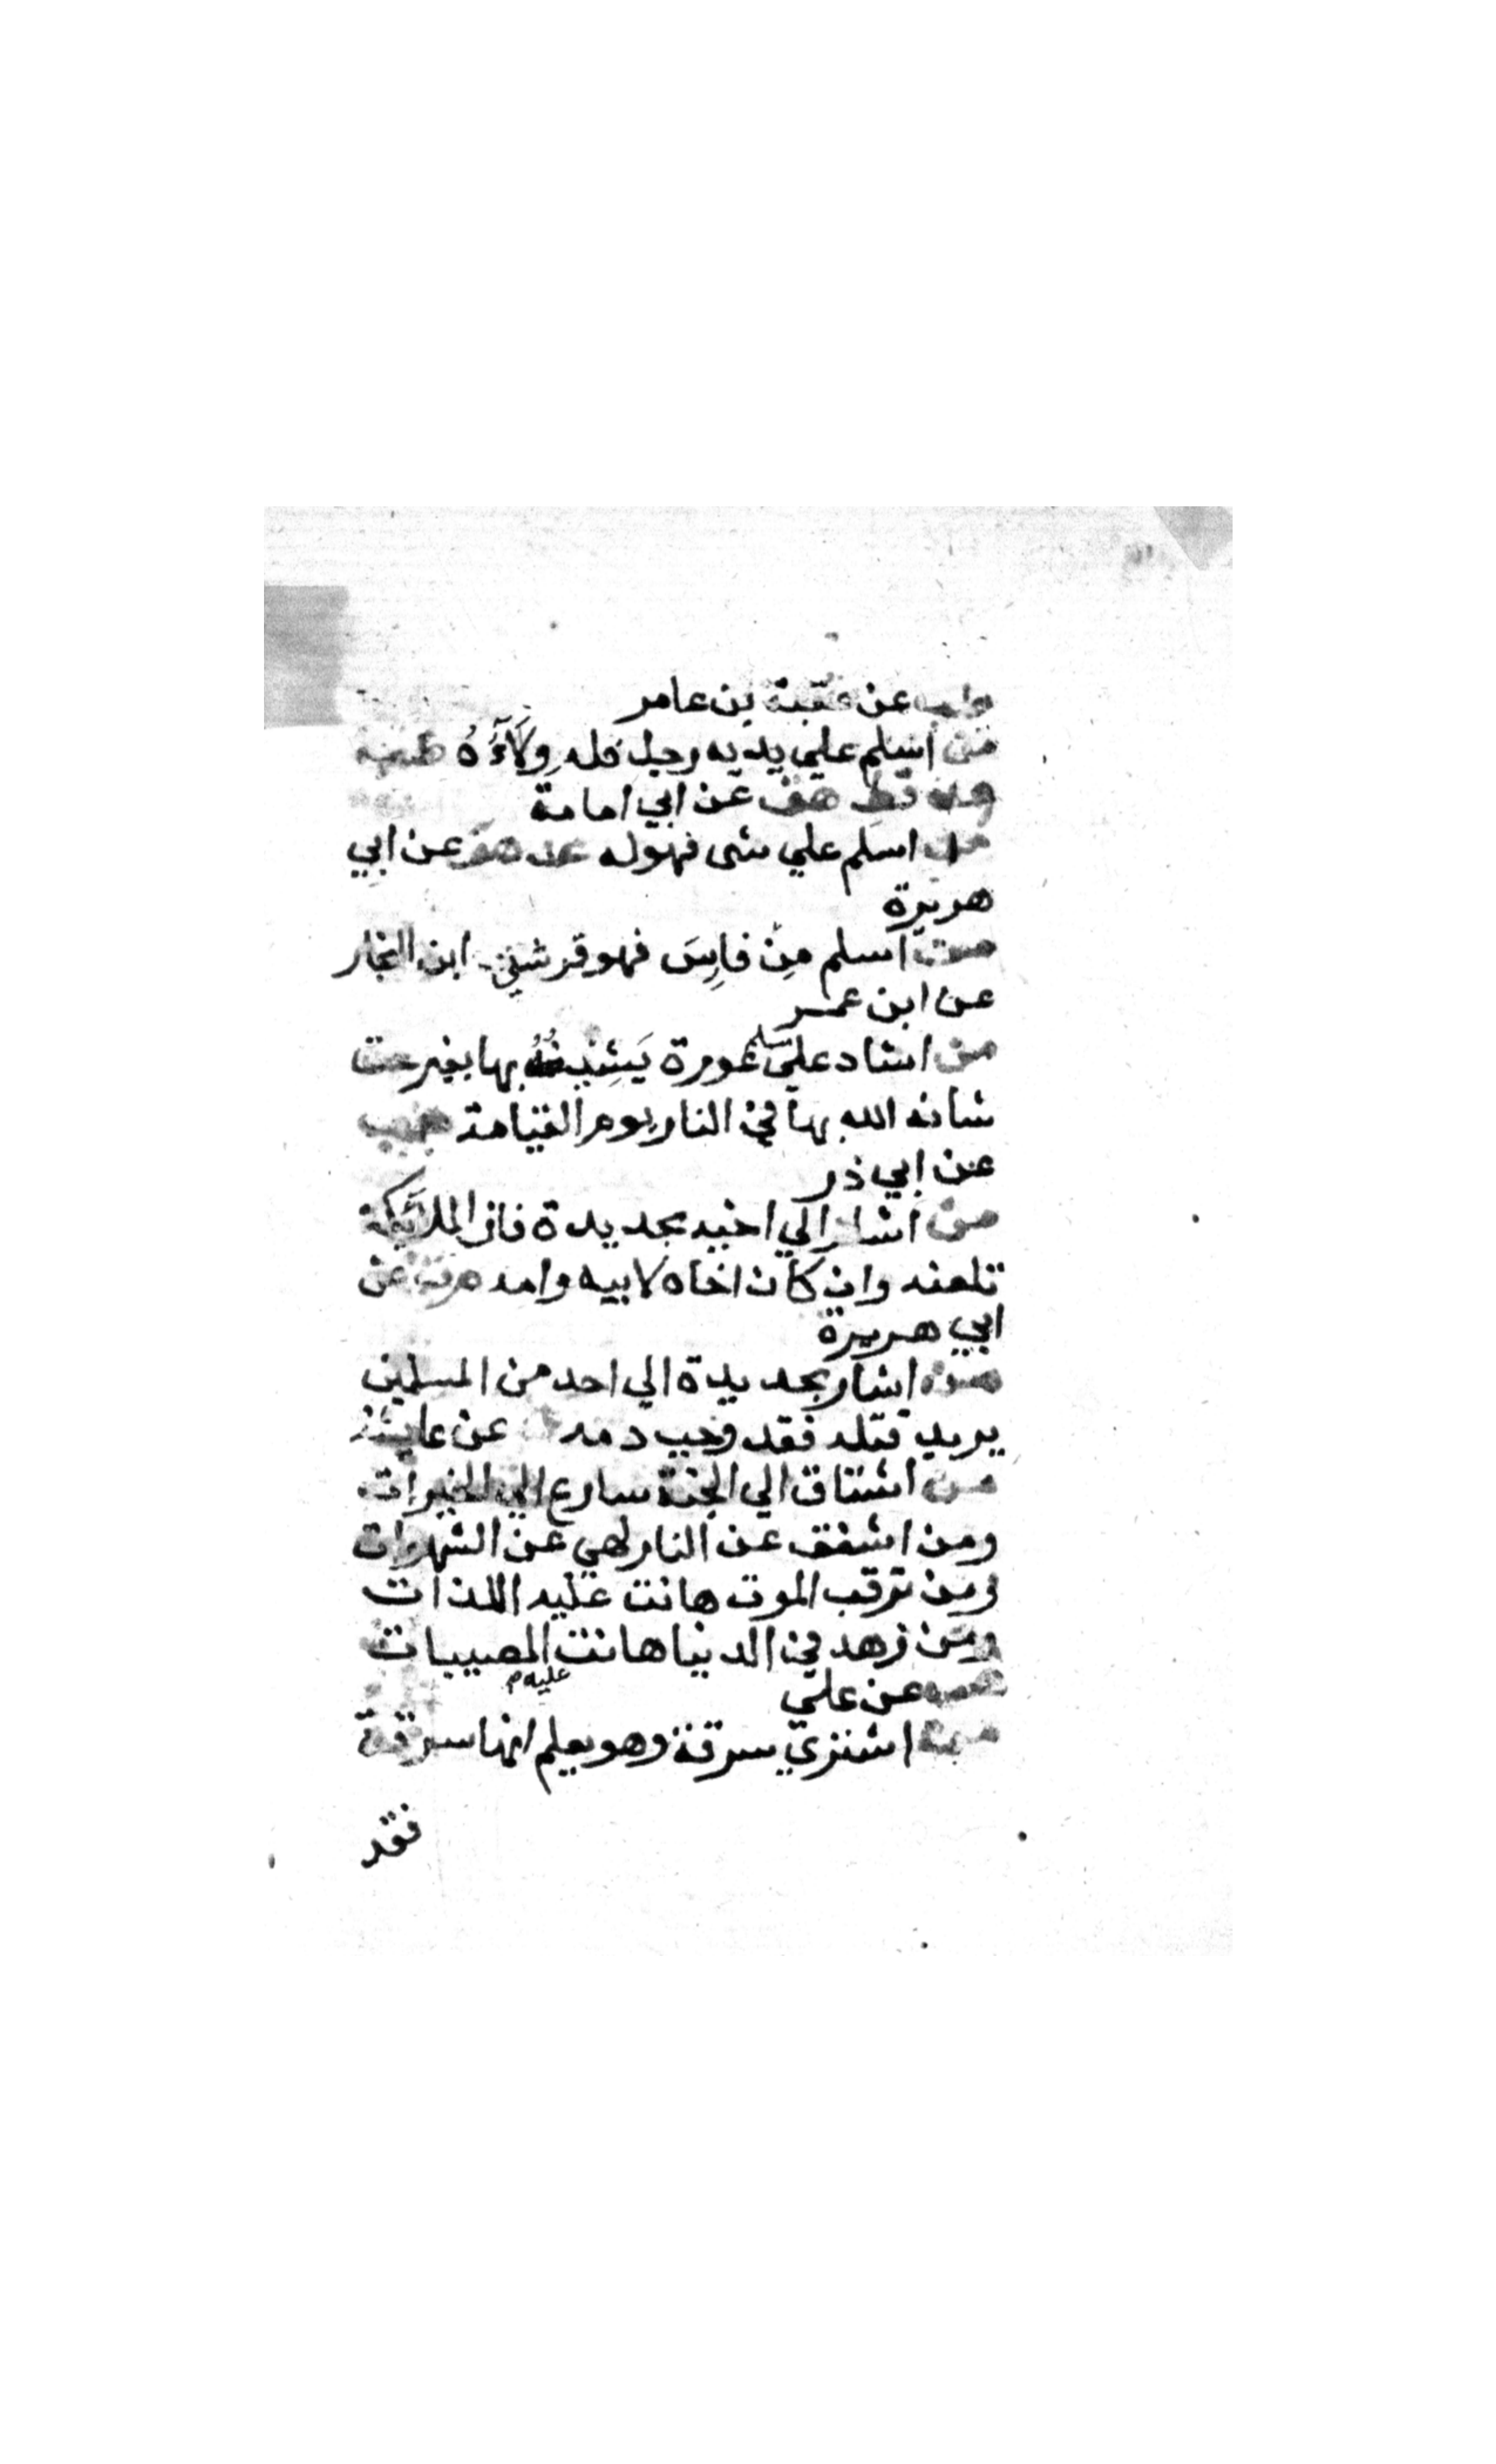 طب عن عقبة بن عامر
من اسلم علي يديه رجل فله وِلَآؤُهُ طب
قط هق عن ابي امامة
من اسلم علي شى فهوله عد هق عن ابي
هريرة
من اسلم مِنْ فارِسَ فهو قرشي ابن النجار
عن ابن عمر
من اشاد علي مسلم عورة يَشِينُهُ بها بغير حق
شانه الله بها في النار يوم القيامة هب
عن ابي ذر
من اشار الي اخيه بحديدة فان الملائكة
تلعنه وان كان اخاه لابيه وامه م ت عن
ابي هريرة
من اشار بحديدة الي احد من المسلمين
يريد قتله فقد وجب دمه ك عن عايشة
من اشتاق الي الجنة سارع الي الخيرات
ومن اشفق عن النار لهي عن الشهوات
ومن ترقب الموت هانت عليه اللذات
ومن زهد في الدنيا هانت عليه المصيبات
هب عن علي
من اشتري سرقة وهو يعلم انها سرقة
فقد